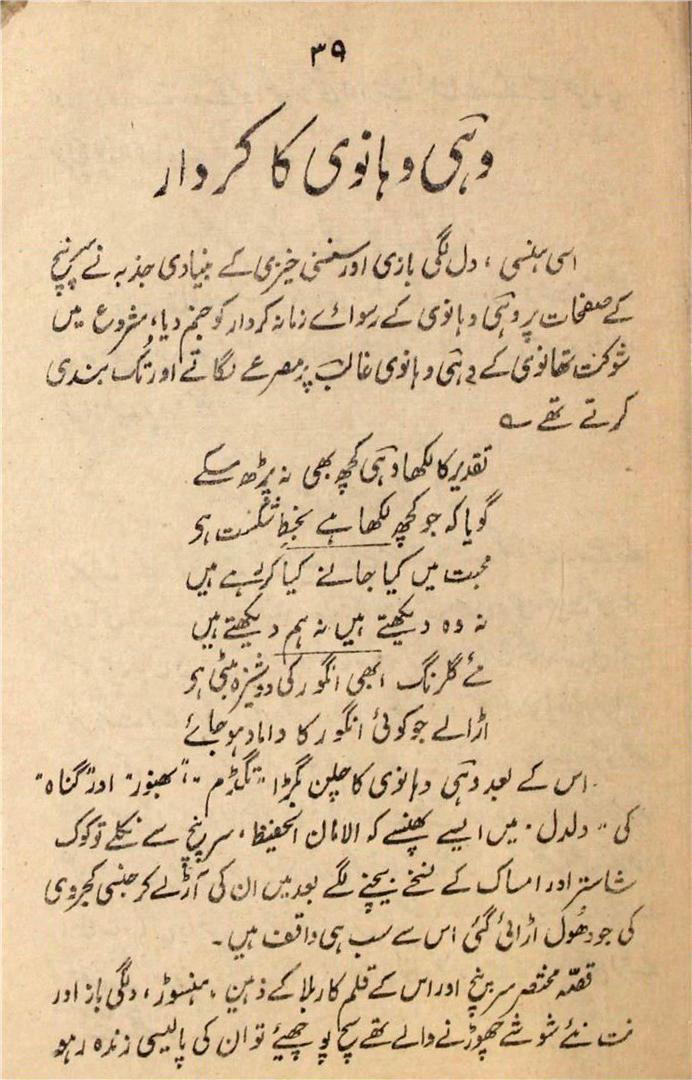 ۳۹
وہی وہانوی کا کردار
اسی ہنسی، دل لگی بازی اور سنسنی خیزی کے بنیادی جذبہ نے سرپنچ
کے صفحات پر وہی وہانوی کے رسوائے زمانہ کردار کو جنم دیا، شروع میں
شوکت تھانوی کے وہی وہانوی غالب پر مصرعے لگاتے اور تُک بندی
کرتے تھے ؎
تقدیر کا لکھا وہی کچھ بھی نہ پڑھ سکے
گویا کہ جو کچھ لکھا ہے بخطِ شکست ہو
محبت میں کیا جانے کیا کر رہے ہیں
نہ وہ دیکھتے ہیں نہ ہم دیکھتے ہیں
مئے گلرنگ ابھی انگور کی دوشیزہ بیٹی ہو
اڑالے جو کوئی انگور کا داماد ہو جائے
اس کے بعد وہی وہانوی کا چلن بگڑا "تگڈم"، "بھنور" اور "گناہ"
کی "دلدل" میں ایسے پھنسے کہ الامان الحفیظ، سرپنچ سے نکلے تو کوک
شاستر اور امساک کے نسخے بیچنے لگے بعد میں ان کی آڑ لے کر جنسی کجروی
کی جو دھُول اڑائی گئی اس سے سب ہی واقف ہیں۔
قصّہ مختصر سرپنچ اور اس کے قلم کار بلا کے ذہین، ہنسوڑ، دلگی باز اور
نت نئے شوشے چھوڑنے والے تھے سچ پوچھیئے تو ان کی پالیسی زندہ رہو